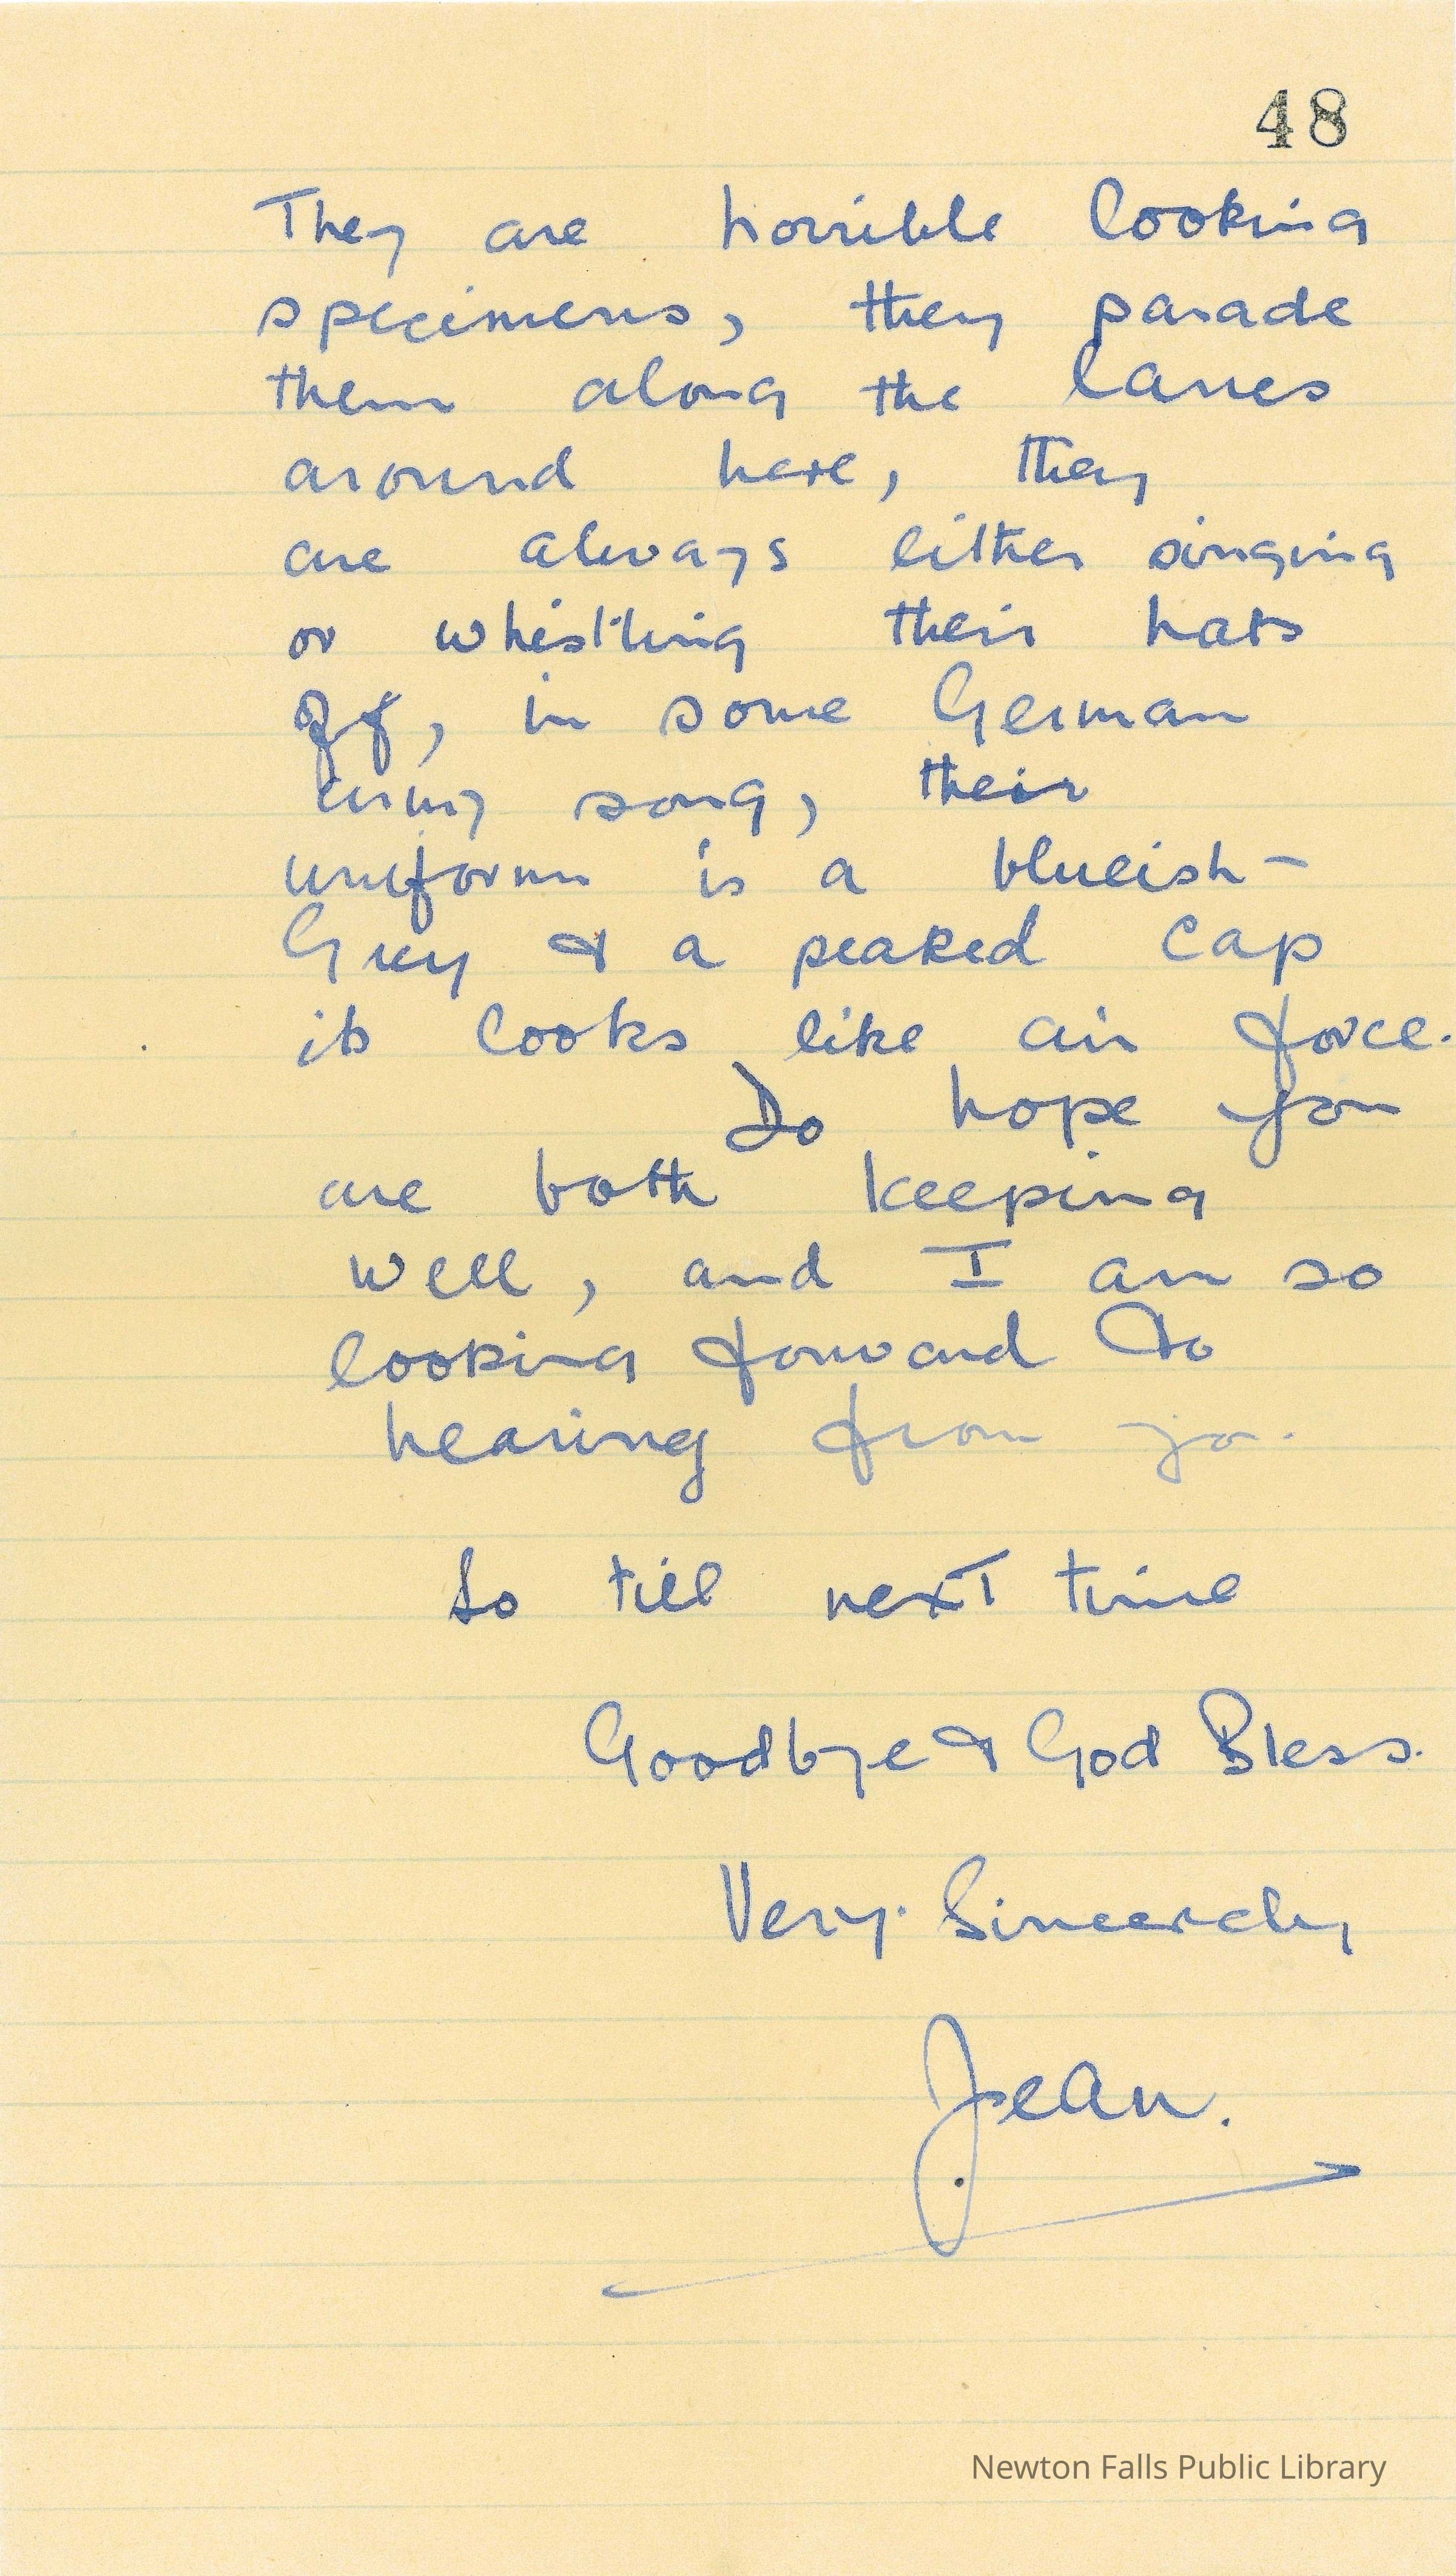 48
They are horrible looking
specimens, they parade
them along the lanes
around here, they
are always either singing
or whistling their hats
off, in some German
army song, their
uniform is a blueish-
Grey & a peaked cap
its looks like air force.
Do hope you
are both keeping
well, and I am so
looking forward to
hearing from yo.
So till next time
Goodbye & God Bless.
Very. Sincerely
Jean.
Newton Falls Public Library